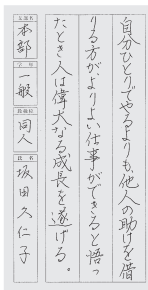 自分ひとりでやるよりも、他人の助けを借
りる方が、よりよい仕事ができると悟っ
たとき人は偉大なる成長を遂げる。
支部名
本部
学年
一般
段級位
同人
氏名
坂田久仁子